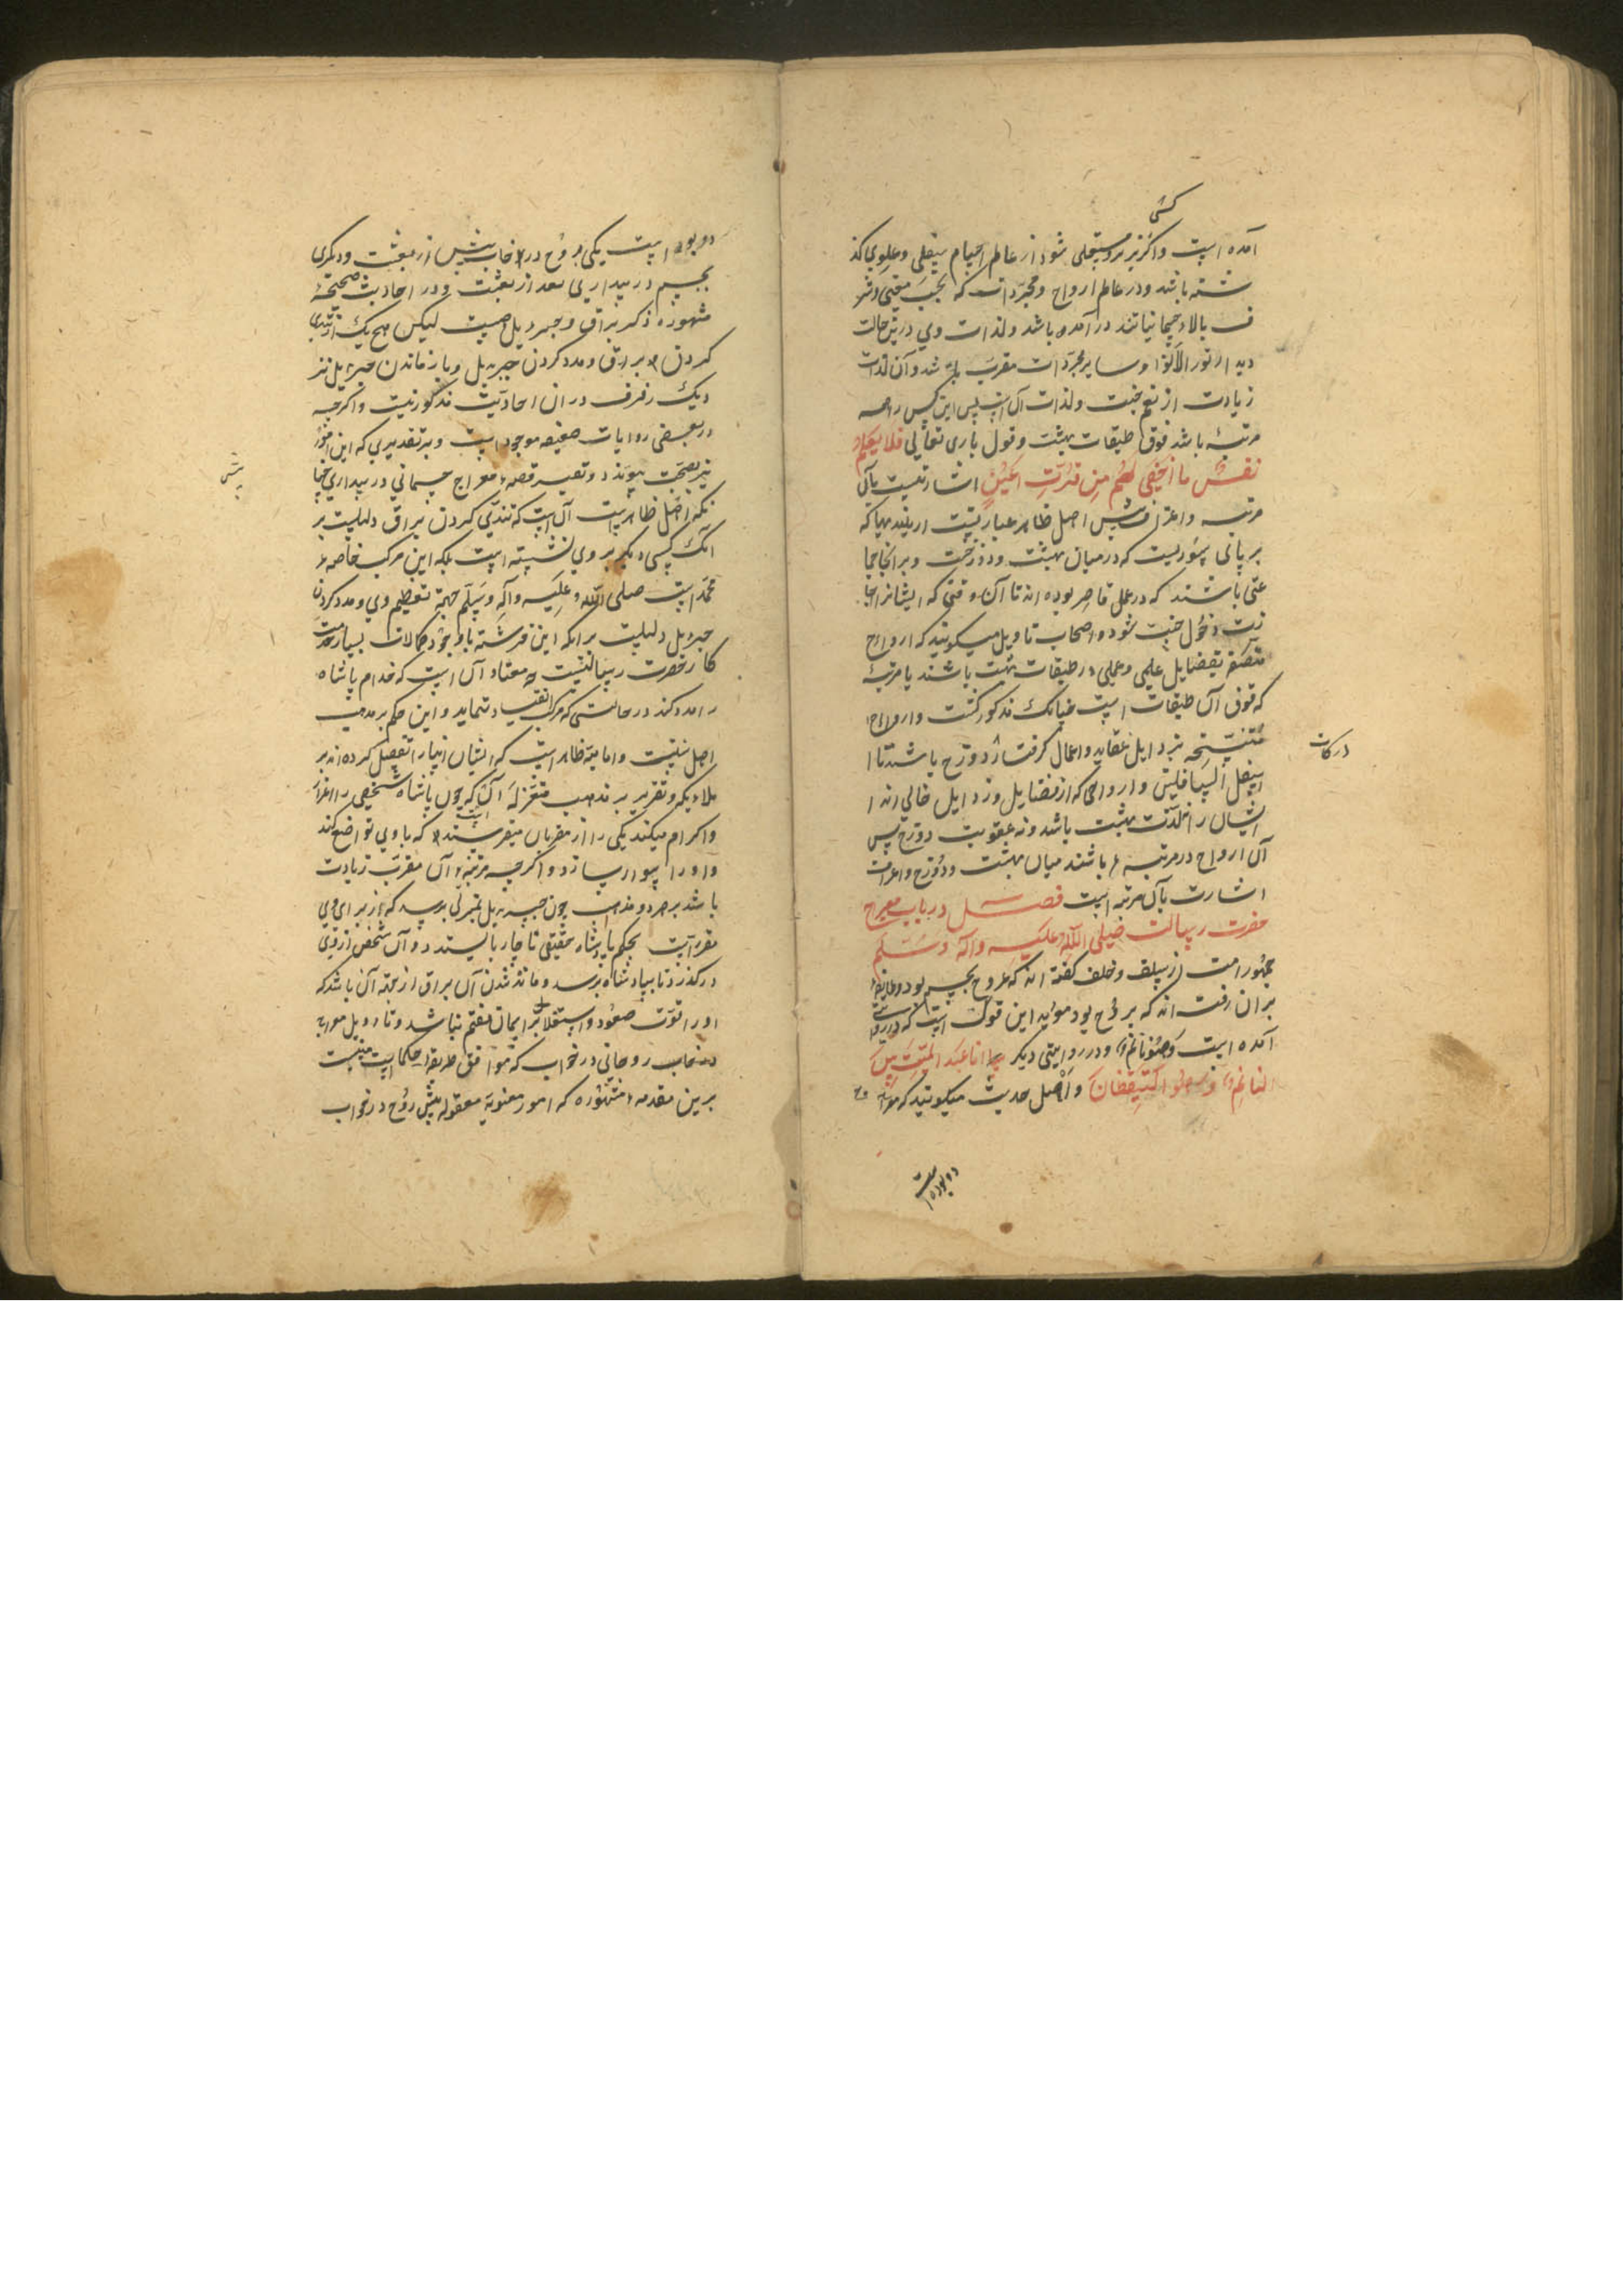 کشی
آمده است واگر نیز متجلی شود از عالم اجسام سفلی وعلوی کذ
شته باشد ودر عالم ارواح ومجردات که بحسب معنی وشر
ف بالاء جسمانیاتند در آمده باشد ولذات وی درین حالت
دیدار نور الانوار وسایر مجردات مقرب باشد وآن لذات
زیادت از نعیم جنت ولذات آن است پس این کس را
مرتبهٔ باشد فوق طبقات بهشت وقول باری تعالی فلا یعلم
نفس ما اخفی لهم من قرت اعین اشارتست بآن
مرتبه واعراف پیش اهل ظاهر عبارتست از بلندیها که
بر بالای سوریست که در میان بهشت ودوزخست وبرانجا جما
عتی باشند که در عمل قاصر بوده اند تا آن وقتی که ایشانرا اجا
زت دخول جنت شود واصحاب تاویل میکویند که ارواح
متصف بفضایل علمی وعملی در طبقات بهشت باشند یا مرتبهٔ
که فوق آن طبقات است چنانک مذکور کشت وارواح
متنسخه برذایل عقاید واعمال کرفتار دوزخ باشند تا
درکات
اسفل السافلین وارواحی که از فضایل ورذایل خالی اند
ایشان را نه لذت بهشت باشد ونه عقوبت دوزخ پس
آن ارواح در مرتبهٔ باشند میان بهشت ودوزخ واعراف
اشارت بآن مرتبه است فصل در باب معراج
حضرت رسالت صلی الله علیه وآله وسلم
جمهور امت از سلف وخلف کفته اند که عروج بجسم بود وطایفهٔ
بران رفته اند که بروح بود موید این قول است که در روایت
آمده است وهو نائم ودر روایتی دیکر انا عند البیت بین
النائم والیقظان واهل حدیث میکویند که معراج
دو بوده است
دو بوده است یکی بروح در خواب پیش از بعثت ودیکری
بجسم در بیداری بعد از بعثت ودر احادیث صحیحهٔ
مشهوره ذکر براق وجبرییل هست لیکن هیچ یک از تندی
کردن براق ومدد کردن جبرییل وباز ماندن جبرییل نز
دیک رفرف در ان احادیث مذکور نیست واکرچه
در بعضی روایات ضعیفه موجود است وبر تقدیری که این امور
نیز بصحت پیوندد وتفسیر قصهٔ معراج جسمانی در بیداری چنا
پش
نکه اهل ظاهر است آن است که تندی کردن براق دلیلیست بر
انک کسی دیکر بر وی ننشسته است بلکه این مرکب خاصهٔ
محمد است صلی الله علیه وآله وسلم جهة تعظیم وی ومدد کردن
جبرییل دلیلیست برانکه این فرشته با وجود کمالات بسیار خدمت
کار حضرت رسالتست چه معتاد آن است که خدام پادشاه
را مدد کند در حالتی که مرکب انقیاد ننماید واین حکم بر مذهب
اهل سنت وامامیه ظاهر است که ایشان انبیا را تفضیل کرده اند بر
ملائکه وتقریر بر مذهب معتزله آن است که چون پادشاه شخصی را اعزاز
واکرام میکند یکی را از مقربان میفرستد که با وی تواضع کند
واو را سوار سازد واکرچه مرتبهٔ آن مقرب زیادت
باشد بر هر دو مذهب چون جبرییل بمنزلی برسد که از برای وی
مقررست بحکم پادشاه حقیقی ناچار بایستد وآن شخص از وی
درکذرد تا بپادشاه برسد ومانده شدن آن براق از جهة آن باشد که
او را قوت صعود واستقلال بر ایمان مفهم نباشد وتاویل معراج
روحانی در خواب که موافق طریقهٔ حکماست مبنیست
برین مقدمهٔ مشهوره که امور معنویهٔ معقوله پیش روح در خواب